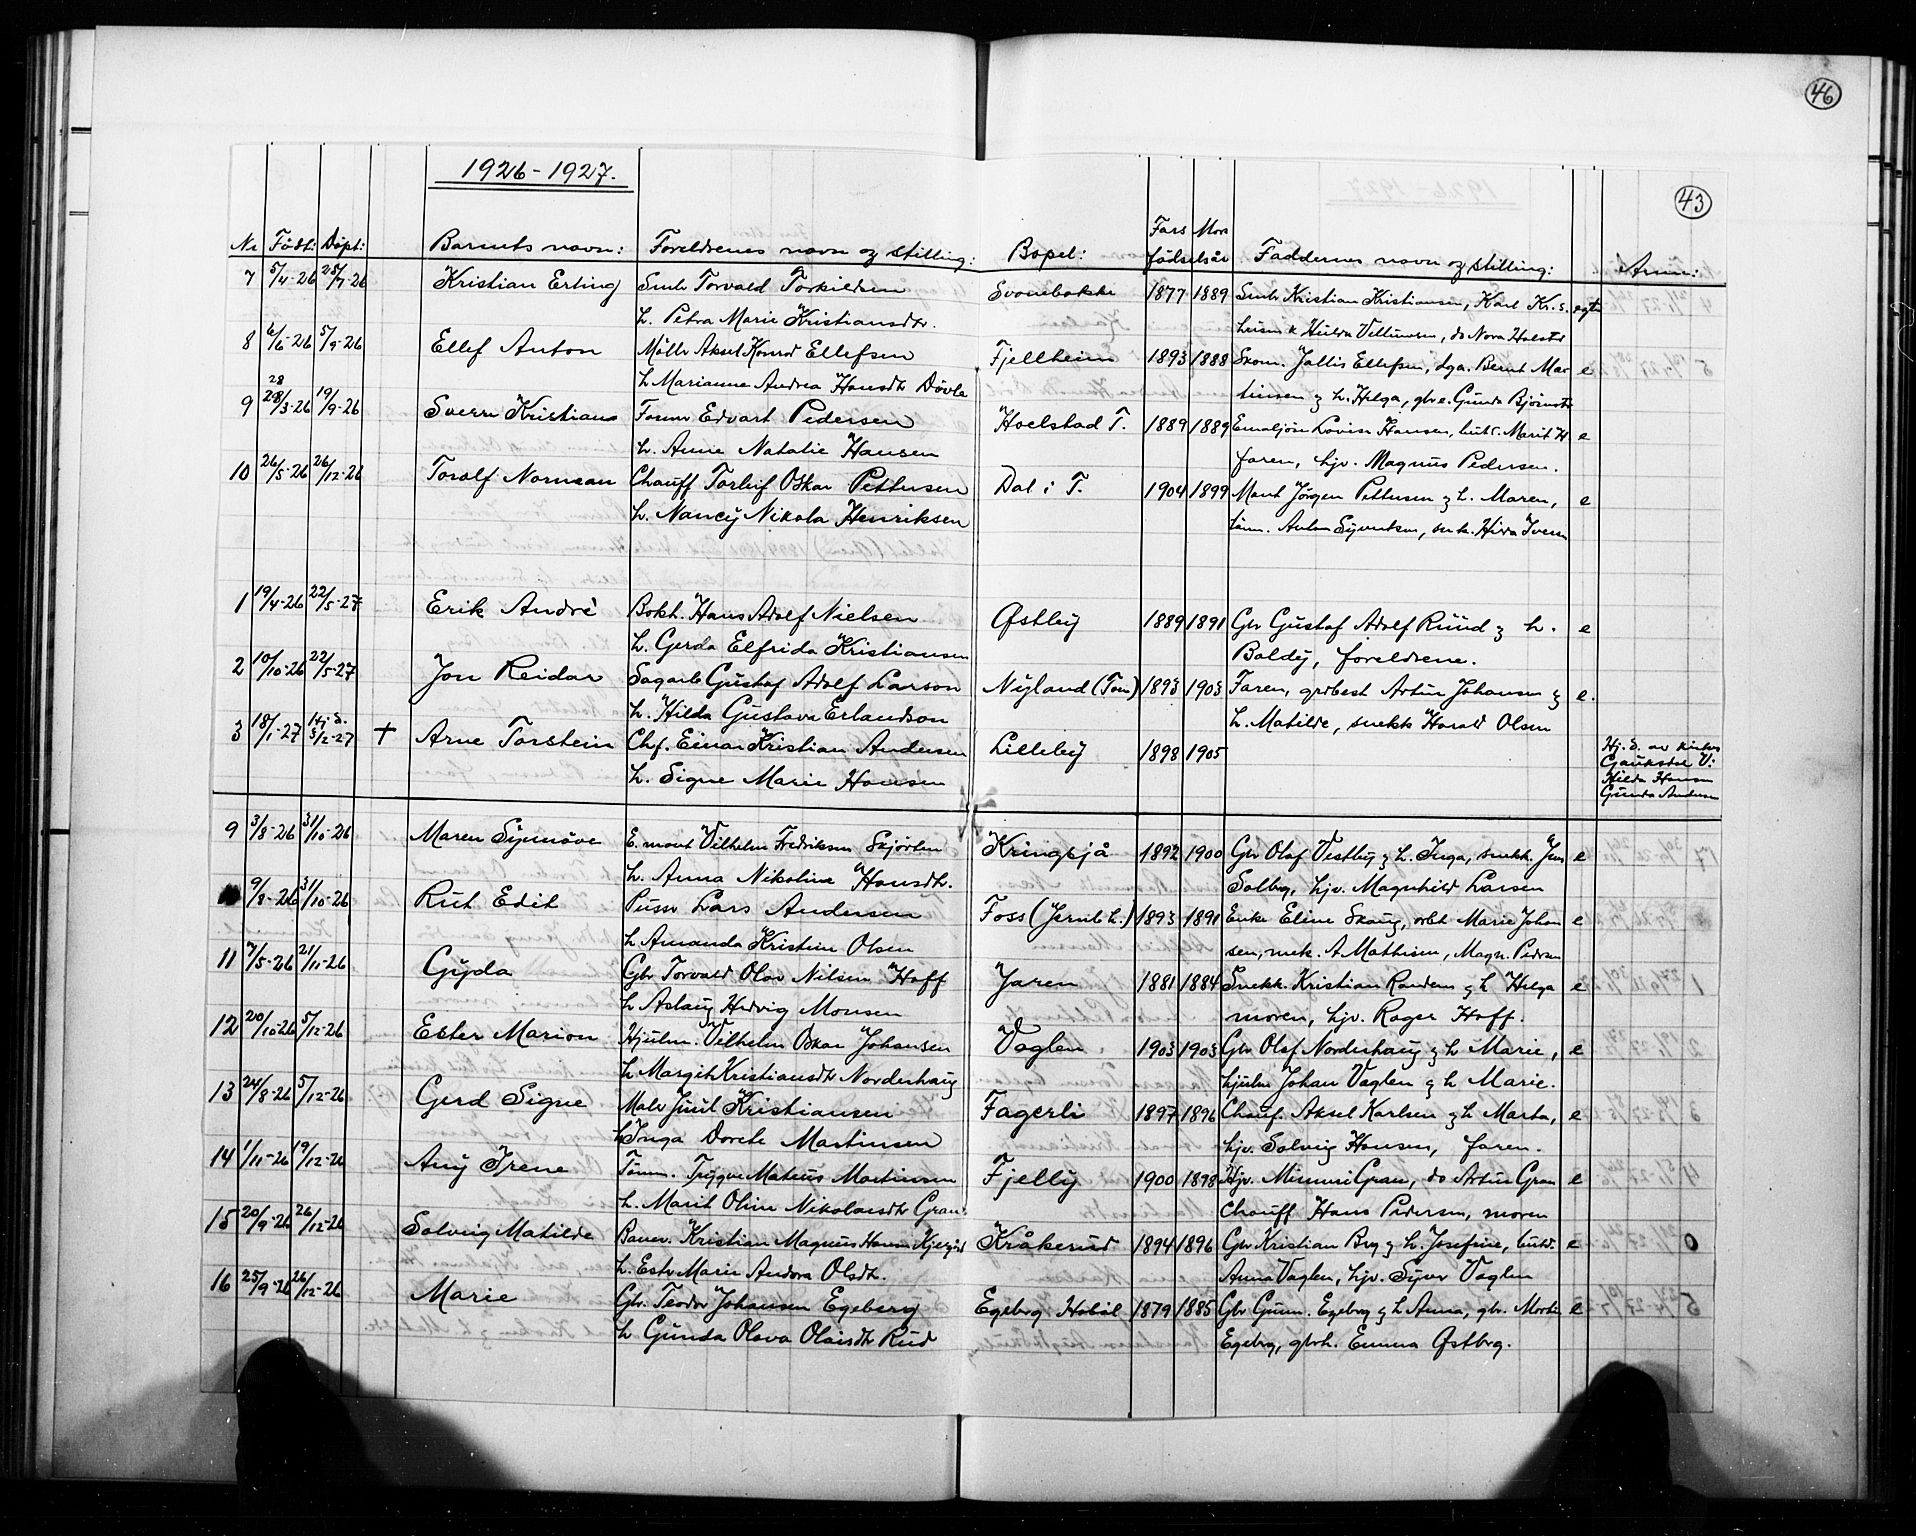 46
1926-1927.
43
Nr Født: Døpt: Barnets navn: Foreldrenes navn og stilling: Bopel: Fars Mors fødselsår Faddernes navn og stilling: Anm:
7 5/4-26 25/7-26 Kristian Erling Smb Torvald Torkildsen Svonebakke 1877 1889 Smb Kristian Kristiansen, Karl Kr.s.
h. Petra Marie Kristiansdtr. & Hulda Nora Holstad
8 6/6-26 5/9-26 Ellef Anton Møller Aksel Konrad Ellefsen Fjellheim 1893 1888 Skom. Ellefsen, dga. Bernt Mar e
h. Marianne Andrea Hansdtr Døvle tinsen & h. Helga, gbr.e. Gunda Bjørnstad
9 28 28/3-26 19/9-26 Sverre Kristians Former Edvart Pedersen Hoelstad T. 1889 1889 Lovise Hansen, Marit H e
h. Anne Natalie Hansen faren, hjv. Magnus Pedersen.
10 26/5-26 26/12-26 Toralf Norman Chauff Torleif Oskar Pettersen Dal i T. 1904 1899 Mont Jørgen Pettersen & h. Maren, e
h. Nancy Nikola Henriksen tøm. Anton Syvertsen,
1 19/4-26 22/5-27 Erik André Bokh. Hans Adolf Nielsen Østby 1889 1891 Gbr Gustaf Adolf Rüüd & h. e
h. Gerda Elfrida Kristiansen Baldy, foreldrene.
2 10/10-26 22/5-27 Jon Reidar Sagarb Gustaf Adolf Larson Nyland (Tom) 1893 1903 Faren, grdbest Artur Johansen & e.
h. Hilda Gustava Erlandson h. Matilde, snekk Harald Olsen
3 18/1-27 Hj.d. 3/2-27 † Arne Torstein Chf. Einar Kristian Andersen Lilleby 1898 1905 Hj.d. av
h. Signe Marie Hansen V:
Hilda Hansen
Gunda Andersen
9 3/8-26 31/10-26 Maren Synnøve E. mont Vilhelm Fredriksen Skjørten Kringsjå 1892 1900 Gbr Olaf Vestby & h. Inga, snekk. Jens e
h. Anna Nikoline Hansdtr. Solberg, hjv. Magnhild Larsen
9/8-26 31/10-26 Rut Edit Pusser Lars Andersen Foss (Jernb.h.) 1893 1891 Enke Eline Skaug, arbt Marie Johan e
h Amanda Kristine Olsen sen, snek. A Mathisen, Magn. Pedersen
11 7/5-26 21/11-26 Gyda Gbr Torvald Olav Nilsen Hoff Jaren 1881 1884 Snekk. Kristian Randem & h Helga e
h Aslaug Hedvig Monsen moren, hjv. Roger Hoff.
12 20/10-26 5/12-26 Ester Marion Hjulm. Vilhelm Oskar Johansen Vaglen 1903 1903 Gbr Olaf Norderhaug & h Marie, e
h Margit Kristiansdtr Norderhaug hjulm Johan Vaglen & h Marie.
13 24/8-26 5/12-26 Gerd Signe Maler Juul Kristiansen Fagerli 1897 1896 Chauf. Aksel Karlsen & h Marta, e
h Inga Dorete Martinsen hjv. Solveig Hansen, faren.
14 1/11-26 19/12-26 Any Irene Tømm. Trygve Mateus Martinsen Fjelly 1900 1898 Hjv. Gran, do Artur Gran e
h. Marit Oline Nikolaisdtr Gran Chauff Hans Pedersen, moren
15 20/9-26 26/12-26 Solveig Matilde Banev. Kristian Magnus Hansen Kråkerud 1894 1896 Gbr Kristian Berg & h. Josefine, butd. e 0
h. Ester Marie Andora Olsdtr. Anna Vaglen, hjv. Syver Vaglen
16 25/9-26 26/12-26 Marie Gbr. Teodor Johansen Egeberg Egeberg Hobøl 1879 1885 Gbr Gunn. Egeberg & h Anna, gbr. Martin e
h Gunda Olava Olaisdtr Rud Egeberg, gbrh. Emma Østberg.